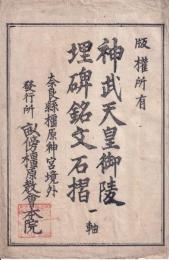 版權所有
神武天皇御陵
埋碑銘文石摺 一軸
奈良縣橿原神宮境外
發行所 畝傍橿原教會本院